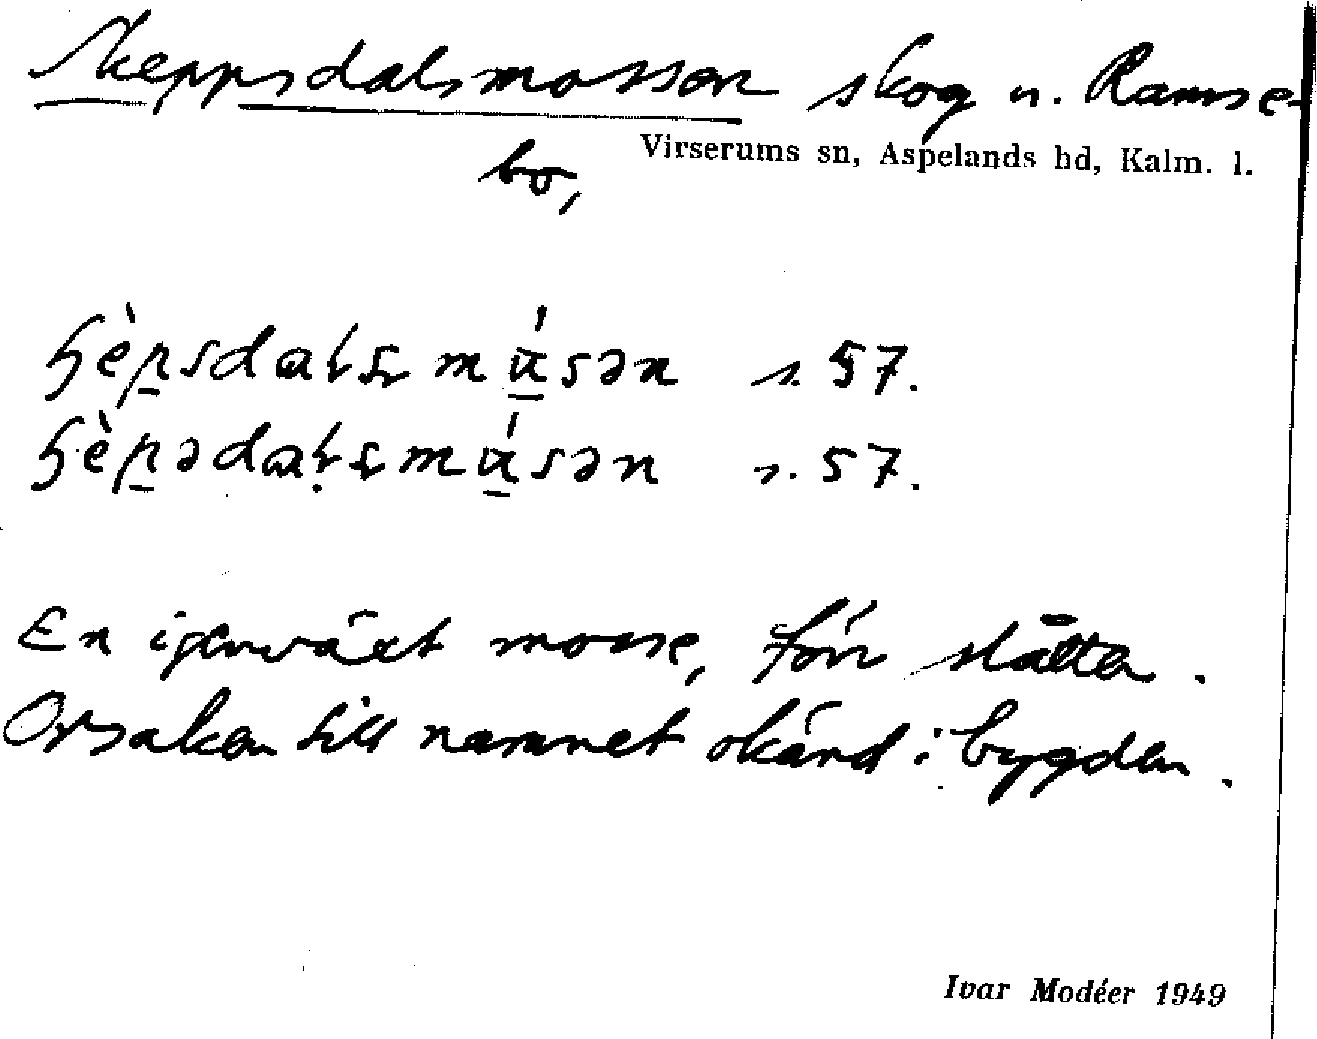 Skeppsdalsmossen skog u. Ramse-
bo, Virserums sn, Aspelands hd, Kalm. l.
s. 57.
s. 57.
En igenväxt mosse, förr slåtter.
Orsaken till namnet okänd i bygden.
Ivar Modéer 1949